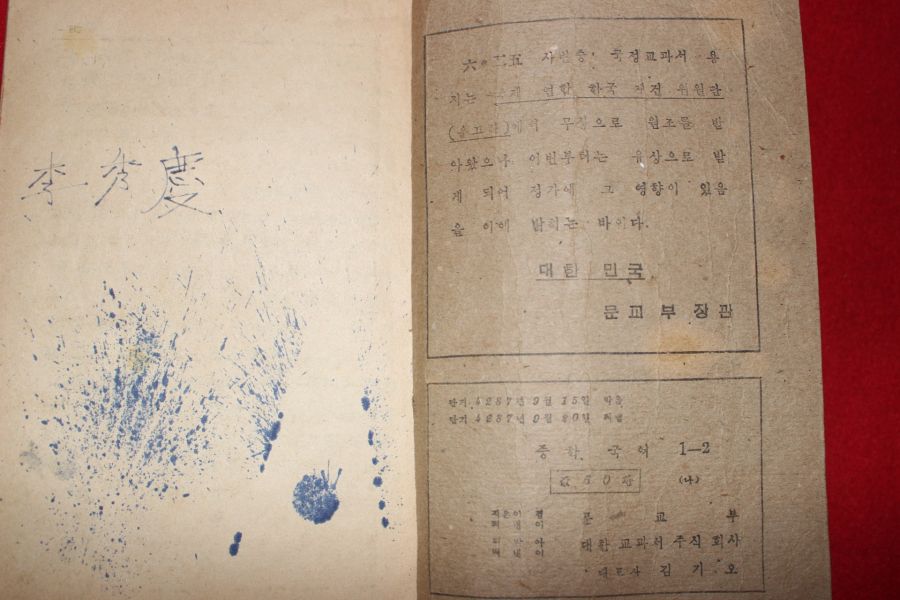 李秀慶
六•二五 사변중 국정교과서 용
지는 연합 한국 재건 위원단
(운끄라)에서 무상으로 원조를 받
아왔으나 이번부터는 유상으로 받
게 되어 정가에 그 영향이 있음
을 이에 밝히는 바이다.
대한 민국
문교부장관
단기 4287년 9월 15일 박음
단기 4287년 9월 20일 펴냄
중학 국어 1—2
(나)
지은이 겸
펴낸이 문교부
박은이
펴낸이 대한교과서주식회사
대표자 김기오